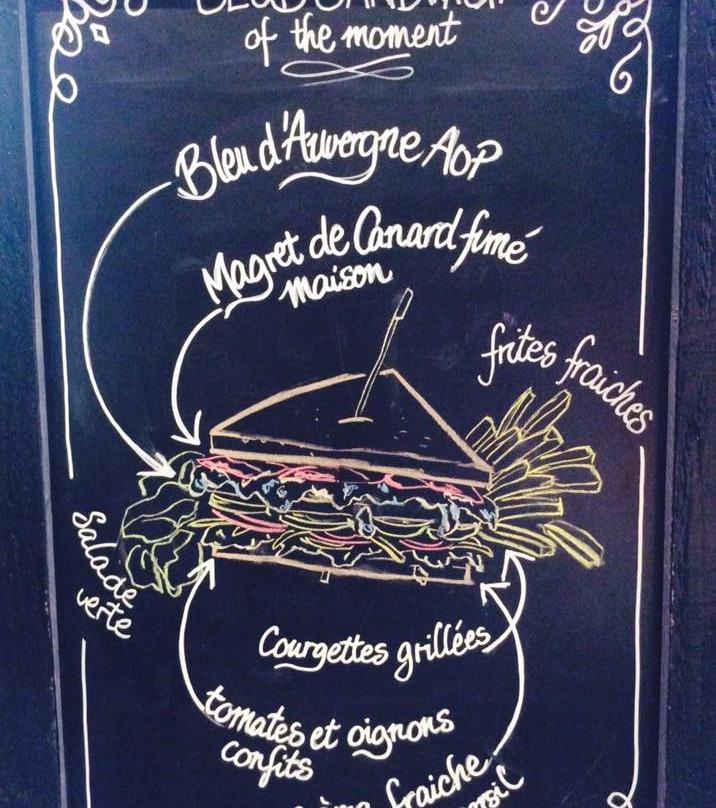 CLUB SANDWICH
of the moment
Bleu d'Auvergne AOP
Magret de Canard fumé
maison
frites fraiches
Salade
verte
Courgettes grillées
tomates et oignons
confits
fraiche